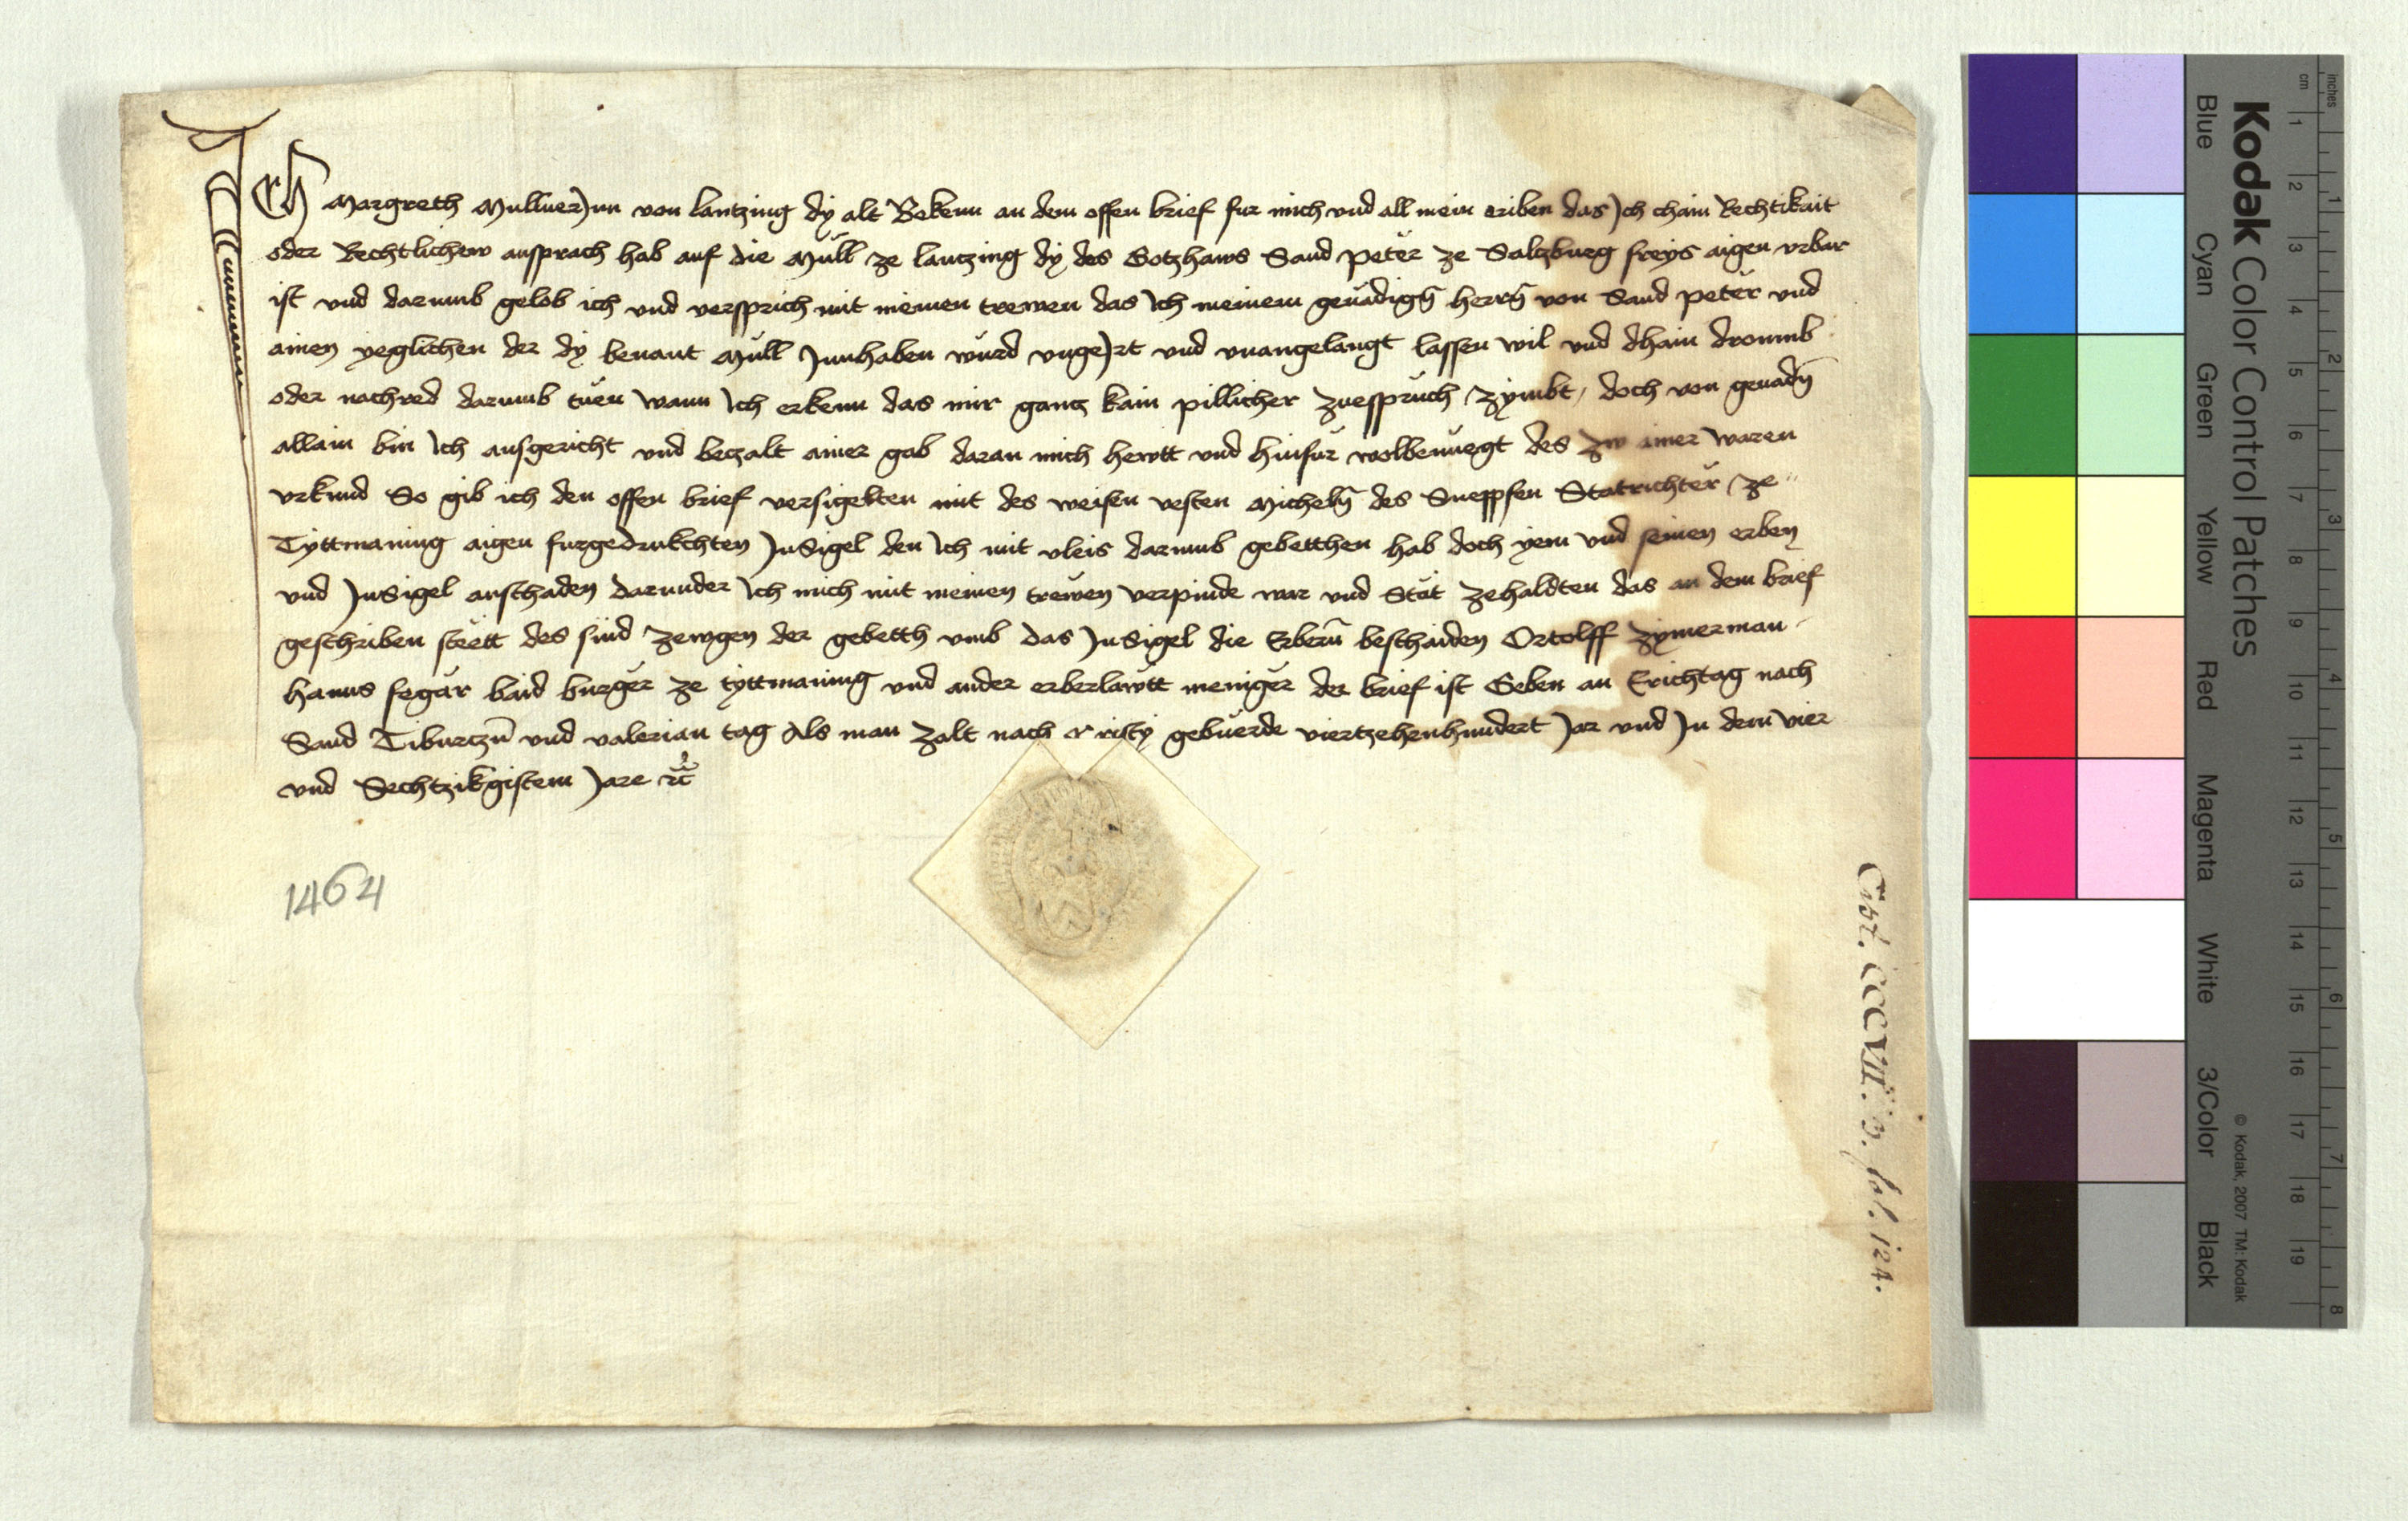 Ich Margreth Mullnerjnn von lantzing dÿ alt Bekenn an dem offen brief fur mich vnd all mein eriben das Jch chain Rechtikait
oder Rechtlichew ansprach hab auf die Müll ze lantzing dÿ des Gotzhaws Sand peter ze Saltzburg freys aigen vrbar
ist vnd darumb gelob ich vnd versprich mit meinen trewen das Ich meinem genädigñ herrñ von Sand peter vnd
ainen yeglichen der dÿ benant Müll Jnnhaben würd vngeJrt vnd vnangelangt lassen wil vnd dhain dromb
oder nachred darumb tuen wann Ich erkenn das mir gantz kain pillicher zuespruch zymbt / doch von genadñ
allain bin Ich ausgericht vnd beczalt ainer gab daran mich hewtt vnd hinfür wolbenuegt des zw ainer waren
vrkund So gib ich den offen brief versigelten mit des weisen vesten Michelñ des Sneppfen Statrichter ze
Tyttmaning aigen furgedrukchten JnSigel den Ich mit vleis darumb gebetthen hab doch yem vnd seinen erben
vnd JnSigel anschaden darunder Ich mich mit meinen trewen verpinde war vnd Stät zehaldten das an dem brief
geschriben stett des sind zewgen der gebetth vmb das JnSigel die Erberñ beschaiden Ortolff zymerman
hanns segär baid burger ze tyttmaning vnd ander erberlawtt meniger der brief ist Geben an Erichtag nach
Sand Tiburczñ vnd valerian tag Als man zalt nach cristÿ gebuerde viertzehenhundert Jar vnd Jn dem vier
vnd Sechtzikgistem Jare etc
1464
Cist. CCCVII. 3. fol. 124.
Kodak Color Control Patches
Blue Cyan Green Yellow Red Magenta White 3/Color Black
© Kodak, 2007 TM: Kodak
inches 1 2 3 4 5 6 7 8
cm 1 2 3 4 5 6 7 8 9 10 11 12 13 14 15 16 17 18 19